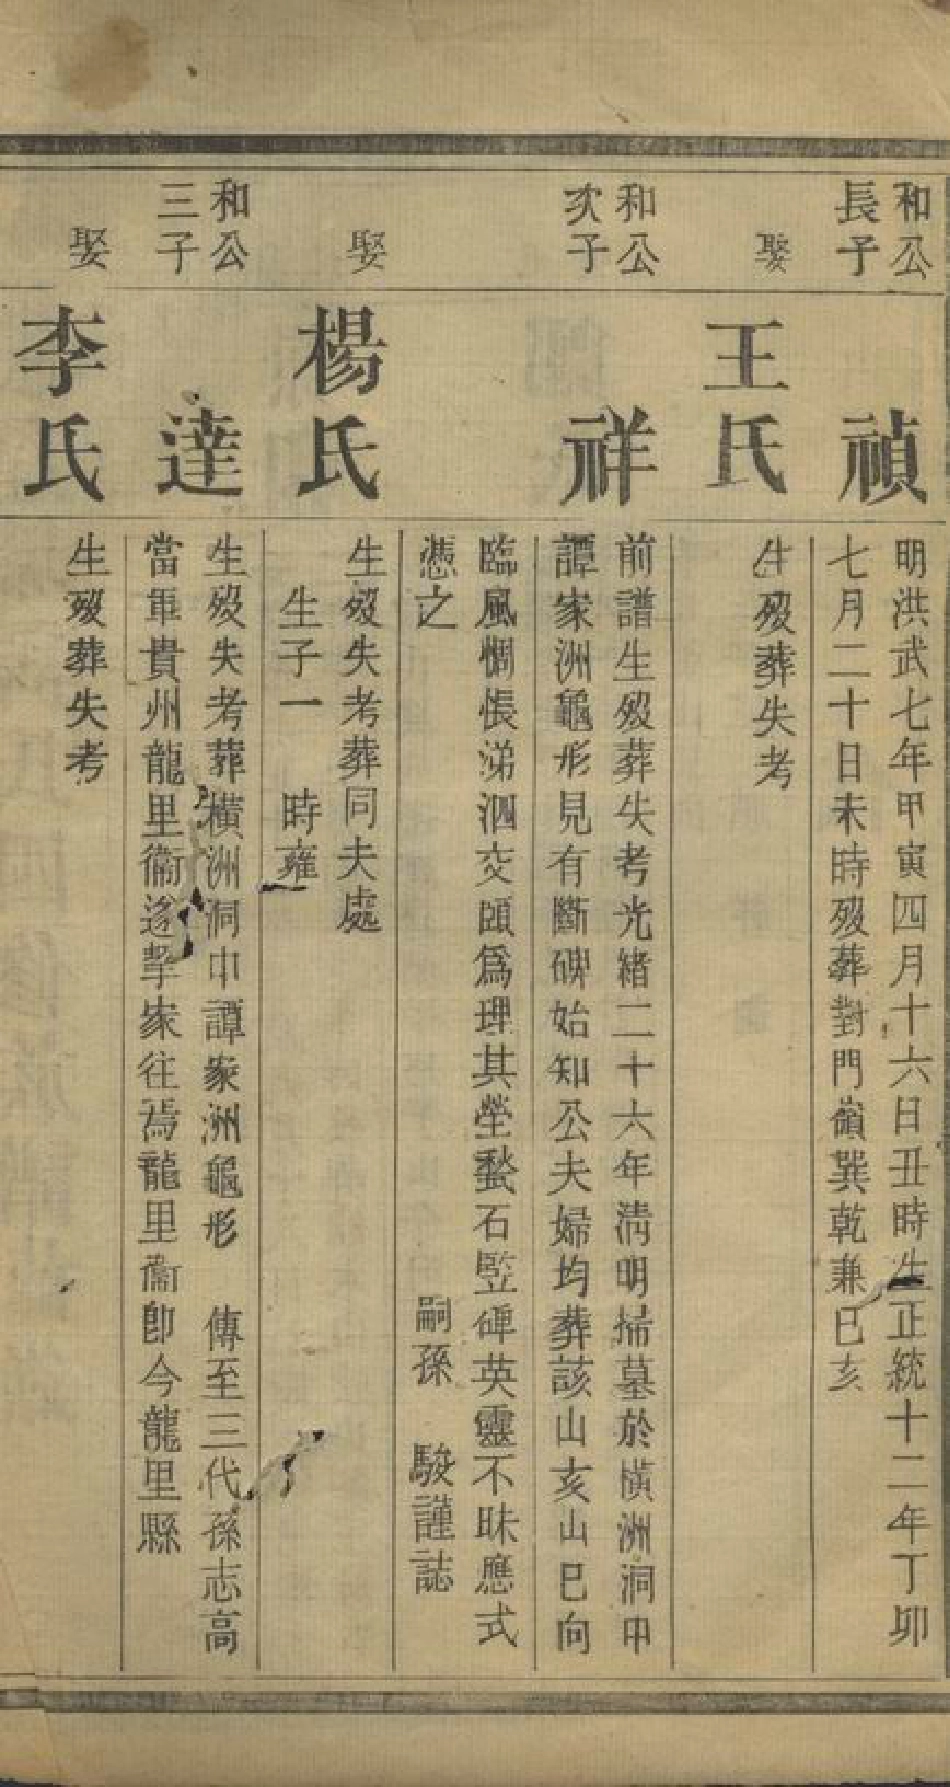 和公
長子
禎
明洪武七年甲寅四月十六日丑時生正統十二年丁卯
七月二十日未時歿葬對門嶺巽乾兼巳亥
娶
王氏
生歿葬失考
和公
次子
祥
前譜生歿葬失考光緒二十六年清明掃墓於橫洲洞中
譚家洲龜形見有斷碑始知公夫婦均葬該山亥山巳向
臨風惆悵涕泗交頤爲理其塋甃石竪碑英靈不昧應式
憑之 嗣孫 駿謹誌
娶
楊氏
生歿失考葬同夫處
生子一 時雍
和公
三子
達
生歿失考葬橫洲洞中譚家洲龜形 傳至三代孫志高
當軍貴州龍里衞遂挈家往焉龍里衞卽今龍里縣
娶
李氏
生歿葬失考